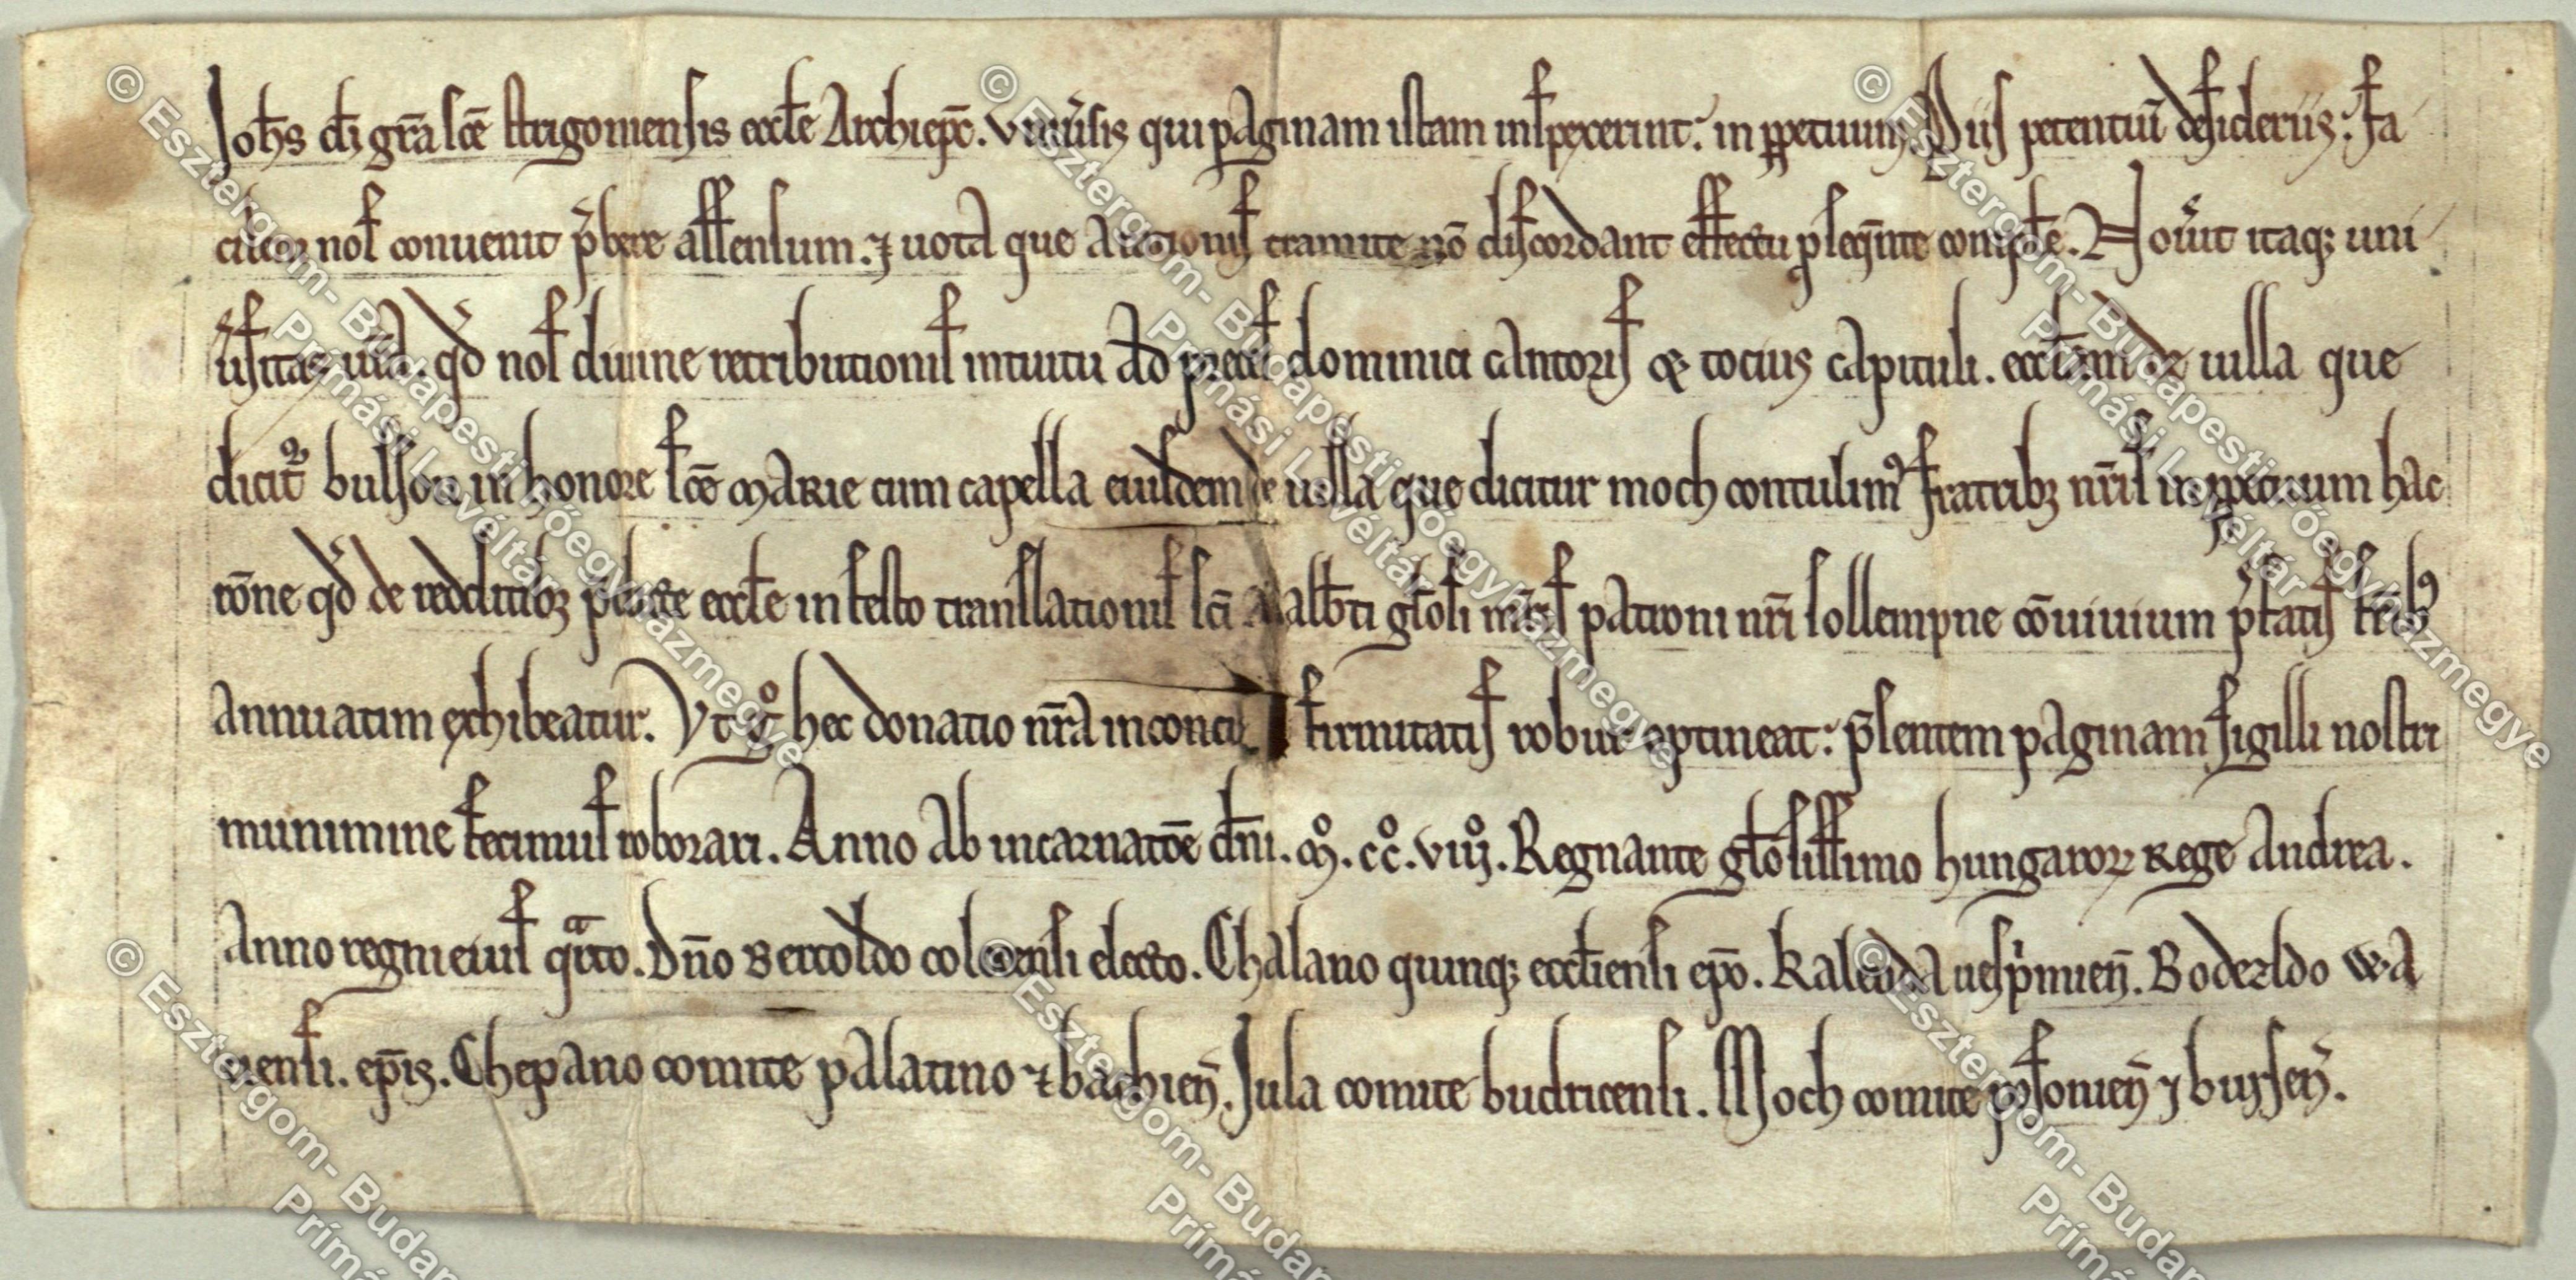 Joh̅s d̅i gr̅a sc̅e strigoniensis eccl̅e Archiep̅c. Uniu̅sis qui paginam istam inspexerint: in p̲petuum. Piis petentiu̅ desideriis: fa
cilem nos convenit p̅bere assensum. ⁊ uota que a rationis tramite no̅ discordant effectu p̲seq̅nte comple̅. Nou̅it itaq; uni
u̅sitas u̅ra. q̅d nos diuine retributionis intuitu ad preces dominici cantoris & tocius capituli. eccl̅am de uilla que
dicit̅ bulsou in honore sc̅e marie cum capella eiusdem de uilla que dicitur moch contulim⁹ fratrib; nr̅is in p̲petuum hac
ro̅ne q̅d de redditib; p̅dicte eccl̅e in festo translationis sc̅i adalb̅ti gl̅osi m̅ris patroni nr̅i sollempne co̅uiuium p̅fatis fr̅ib⁹
annuatim exhibeatur. Ut g̊ hec donatio nr̅a inconcu firmitatis robur optineat: p̅sentem paginam sigilli nostri
munimine fecimus roborari. Anno ab incarnato̅e dn̅i. m̊. cc̊. viiij̊. Regnante gl̅osissimo hungaroꝝ rege Andrea.
Anno regni eius qᵃrto. Dn̅o Bertoldo colocensi electo. Chalano quinq; eccl̅iensi ep̅o. Kalenda uesp̅mien̅. Boderldo wa
ciensi. ep̅is. Chepano comite palatino ⁊ bachien̅. Jula comite budricensi. Moch comite posonien̅ ⁊ bursen̅.
© Esztergom- Budapesti-Főegyházmegye
Prímási Levéltár
© Esztergom- Budapesti-Főegyházmegye
Prímási Levéltár
© Esztergom- Budapesti-Főegyházmegye
Prímási Levéltár
© Esztergom- Budap
Prímá
© Esztergom- Budap
Prímá
© Esztergom- Budap
Prímá